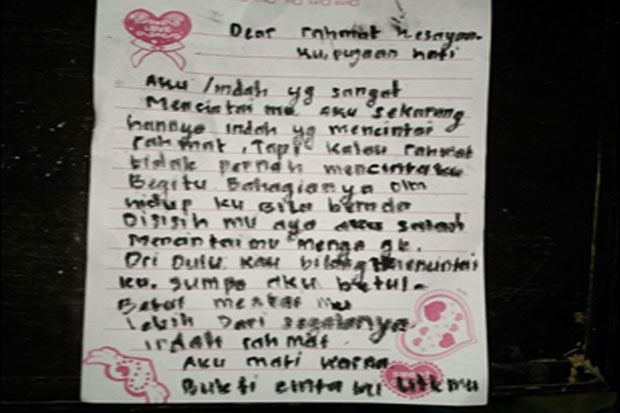 LOVE
Dear rahmat kesayan-
ku, pujaan hati
Aku /indah yg sangat
Mencintai mu aku sekarang
hannya indah yg mencintai
rahmat, Tapi kalau rahmat
tidak pernah mencintaku
Begitu Bahagianya
hidup ku Bila berada
Disisih mu aku salah
Mencintaimu
Dri Dulu kau bilang mencintai
ku. Sumpa aku betul-
Betul
Lebih Dari segalanya
indah rahmat
Aku mati karna
Bukti cinta ku utk mu